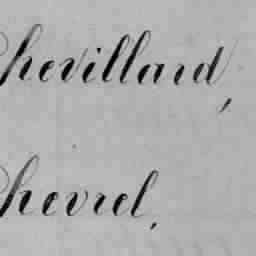 Chevillard,
Chevrel,